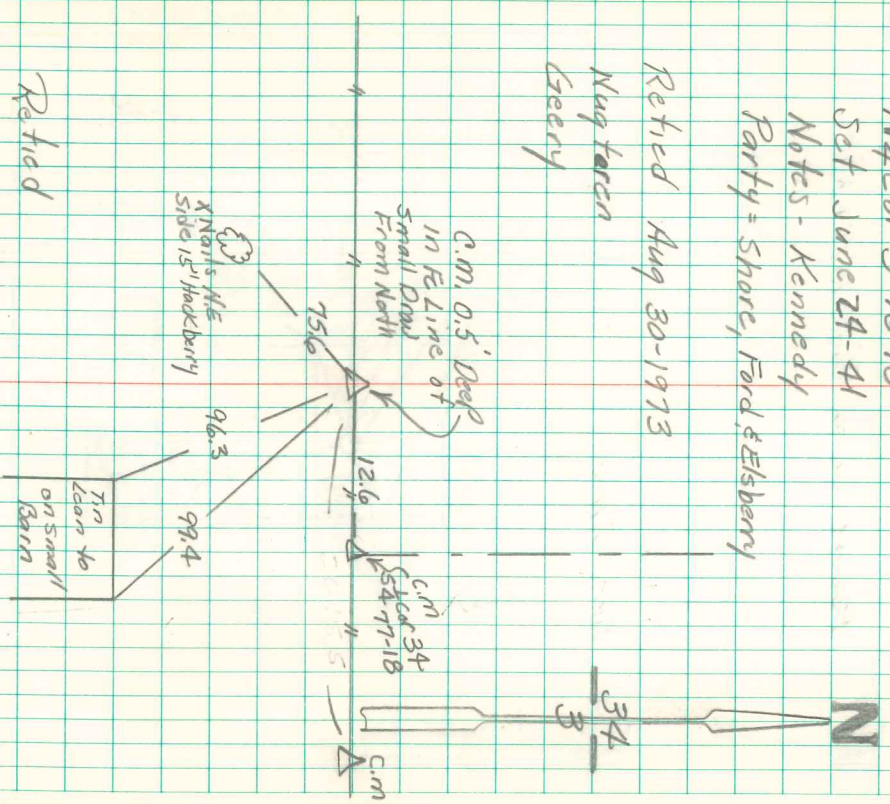 Set June 24-41
Notes - Kennedy
Party = Shore, Ford, & Elsberry
Retied Aug 30-1973
Nugteren
Geery
C.M. 0.5' Deep
in FE Line of
Small Draw
From North
75.6
X Nails N.E
Side 15" Hackberry
96.3
99.4
Tin
Lean to
on small
Barn
12.6
C.M
34
54-77-18
C.M
34
3
N
Retied